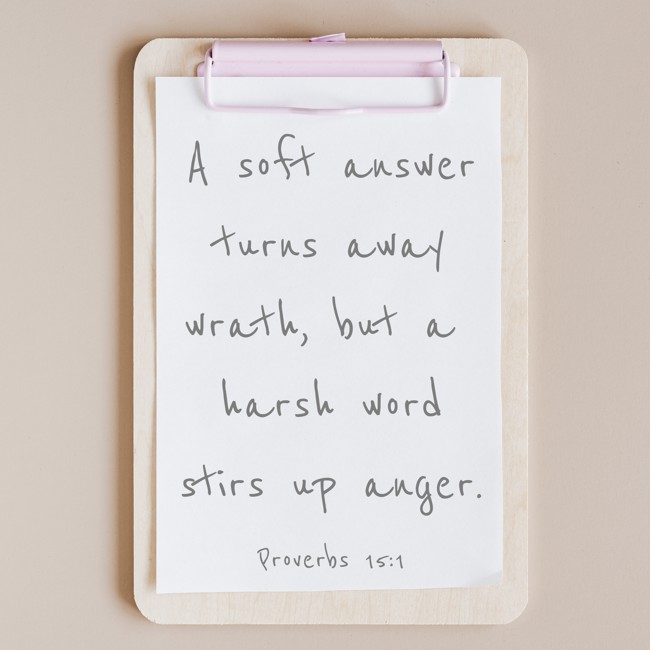 A soft answer
turns away
wrath, but a
harsh word
stirs up anger.
Proverbs 15:1